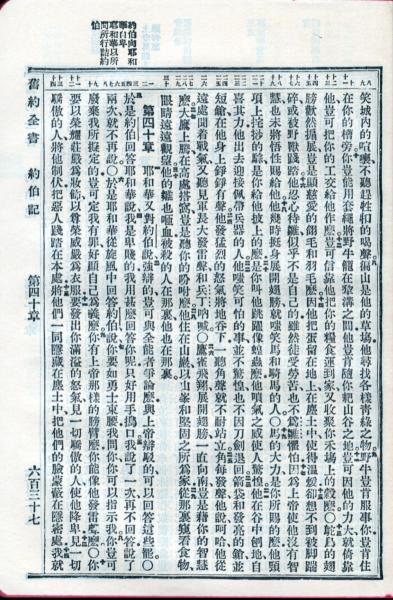 笑城內的喧嚷不聽趕牲口的喝聲徧山是他的草塲他尋找各樣青綠之物野牛豈肯服事你豈肯住
在你的槽旁你豈能用套繩將野牛籠在犂溝之間他豈肯隨你耙山谷之地豈可因他的力大就倚靠
他豈可把你的工交給他作麽豈可信靠他把你的糧食運到家又收聚你禾塲上的穀麽〇鴕鳥的翅
膀歡然搧展豈是顯慈愛的翎毛和羽毛麽因他把蛋留在地上在塵土中使得溫煖卻想不到被脚踹
碎或被野獸踐踏他忍心待雛似乎不是自己的雖然徒受勞苦也不爲雛懼怕因爲上帝使他沒有智
慧也未將悟性賜給他他幾時挺身展開翅膀就嗤笑馬和騎馬的人〇馬的大力是你所賜的麽他頸
項上挓挱的鬃是你給他披上的麽是你叫他跳躍像蝗蟲麽他噴氣之威使人驚惶他在谷中刨地自
喜其力他出去迎接佩帶兵器的人他嗤笑可怕的事並不驚惶也不因刀劍退回箭袋和發亮的鎗並
短鎗在他身上錚錚有聲他發猛烈的怒氣將地吞下一聽角聲就不耐站立角每發聲他說呵哈他從
遠處聞着戰氣又聽見軍長大發雷聲和兵丁吶喊〇鷹雀飛翔展開翅膀一直向南豈是藉你的智慧
麽大鷹上騰在高處搭窩豈是聽你的吩咐麽他住在山巖以山峯和堅固之所爲家從那裏窺看食物
眼睛遠遠觀望他的雛也咂血被殺的人在那裏他也在那裏
第四十章 耶和華又對約伯說強辯的豈可與全能者爭論麽與上帝辯駁的可以回答這些罷〇
約伯向耶和
華自卑
於是約伯回答耶和華說我是卑賤的我用甚麽回答你呢只好用手搗口我說了一次再不回答說了
耶和華以所
兩次就不再說〇於是耶和華從旋風中回答約伯說你要如勇士束腰我問你你可以指示我你豈可
廢棄我所擬定的豈可定我有罪好顯自己爲義麽你有上帝那樣的膀臂麽你能像他發雷聲麽〇你
要以榮耀莊嚴爲妝飾以尊榮威嚴爲衣服要發出你滿溢的怒氣見一切驕傲的人使他降卑見一切
驕傲的人將他制伏把惡人踐踏在本處將他們一同隱藏在塵土中把他們的臉蒙蔽在隱密處我就
舊約全書 約伯記 第四十章 六百三十七